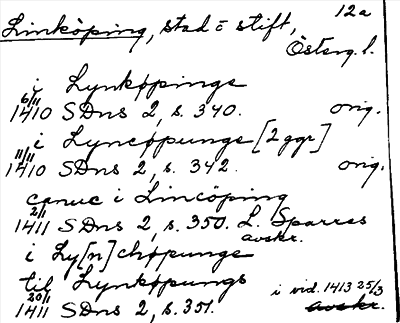 12a
Linköping, stad o stift,
Österg. l.
i Lynkøpinge
6/11 1410 SDns 2, s. 340. orig.
i Lyncøpunge [2 ggr]
11/11 1410 SDns 2, s. 342. orig.
canuc i Lincöping
2/1 1411 SDns 2, s. 350. L. Sparres avskr.
i Ly[n]chøpunge
til Lynkøpungs
i vid. 1413 25/3
20/1 1411 SDns 2, s. 351. avskr.